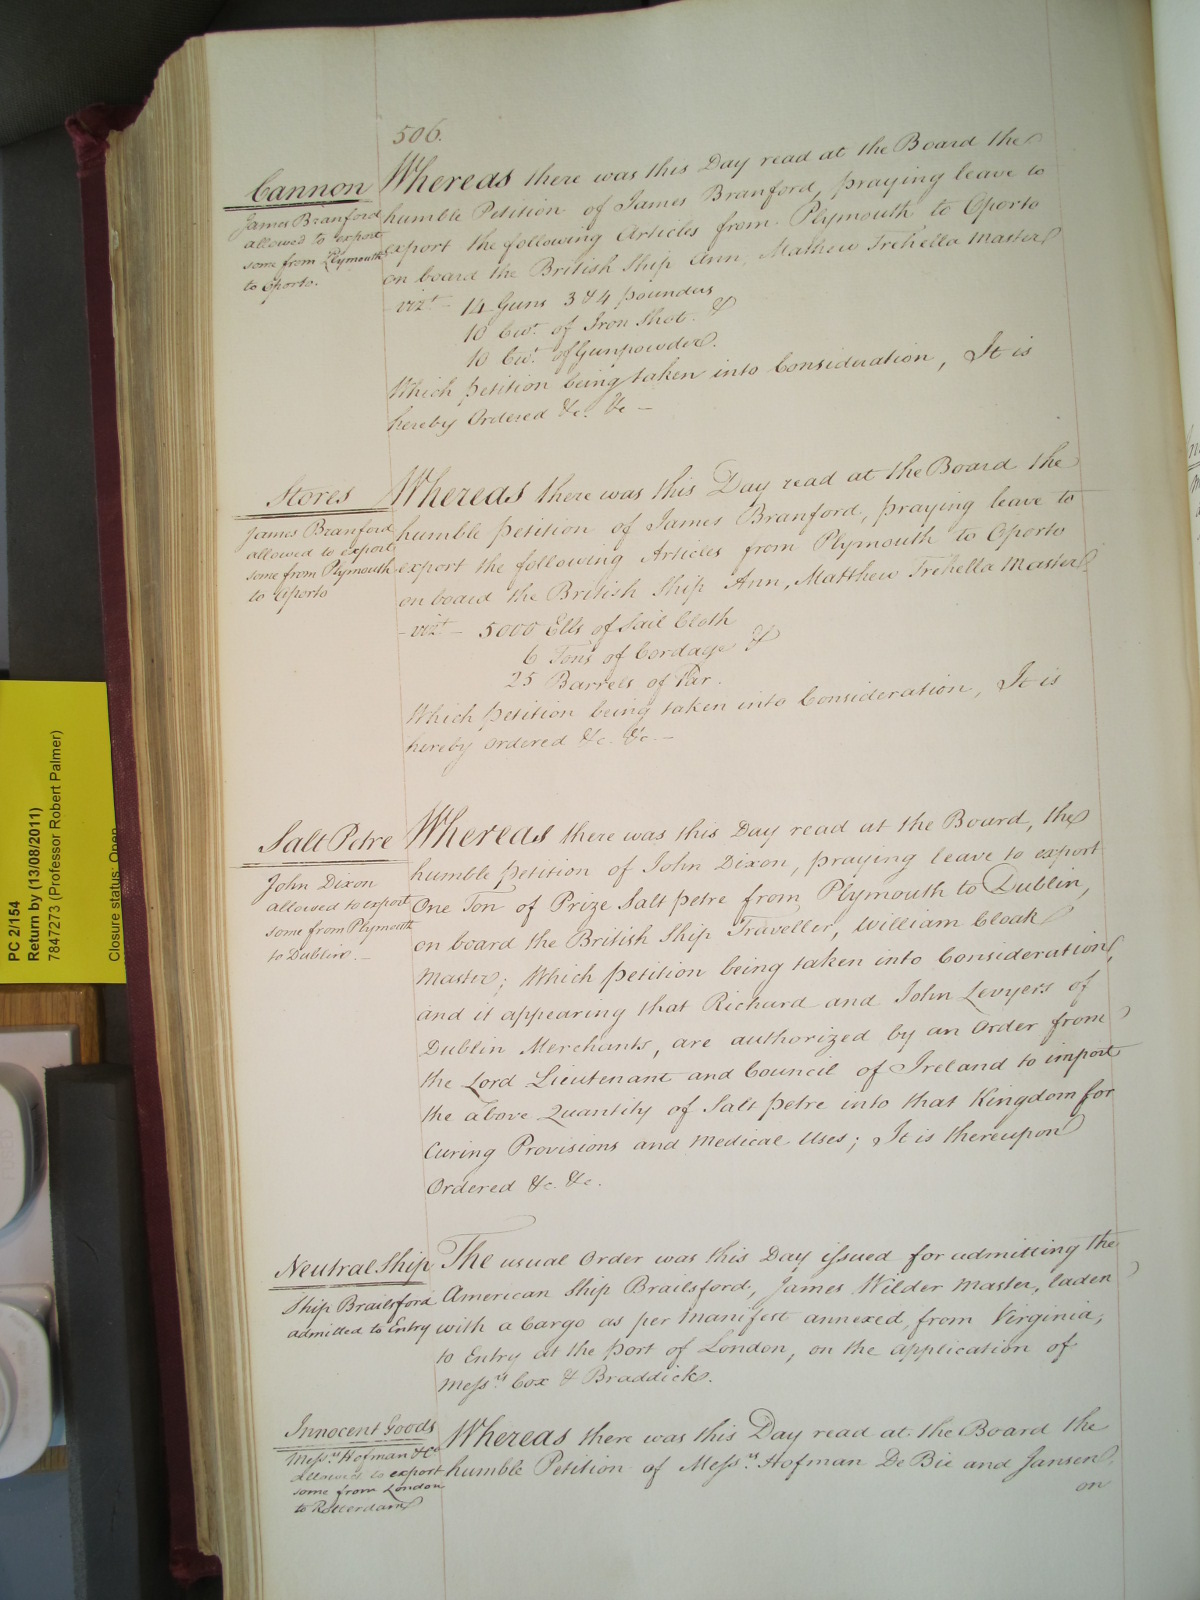 506.
Cannon
James Branford
allowed to export
some from Plymouth
to Oporto.
Whereas there was this Day read at the Board the
humble Petition of James Branford, praying leave to
export the following Articles from Plymouth to Oporto
on board the British Ship Ann, Mathew Trehella Master
vizt - 14 Guns 3 & 4 pounders
10 Cwt. of Iron Shot. &
10 Cwt. of Gunpowder.
Which petition being taken into Consideration, It is
hereby Ordered &c. &c -
Stores
James Branford
allowed to export
some from Plymouth
to Oporto
Whereas there was this Day read at the Board the
humble petition of James Branford, praying leave to
export the following Articles from Plymouth to Oporto
on board the British Ship Ann, Matthew Trehella Master
- vizt - 5000 Ells of Sail Cloth
6 Tons of Cordage &
25 Barrels of Tar.
Which petition being taken into Consideration, It is
hereby Ordered &c. &c. -
Salt Petre
John Dixon
allowed to export
some from Plymouth
to Dublin. -
Whereas there was this Day read at the Board, the
humble petition of John Dixon, praying leave to export
One Ton of Prize Salt petre from Plymouth to Dublin,
on board the British Ship Traveller, William Cloak
Master; Which petition being taken into Consideration,
and it appearing that Richard and John Levyers of
Dublin Merchants, are authorized by an Order from
the Lord Lieutenant and Council of Ireland to import
the above Quantity of Salt petre into that Kingdom for
Curing Provisions and Medical Uses; It is thereupon
Ordered &c. &c.
Neutral Ship
Ship Brailsford
admitted to Entry
The usual Order was this Day issued for admitting the
American Ship Brailsford, James Wilder Master, laden
with a Cargo as per Manifest annexed, from Virginia,
to Entry at the port of London, on the application of
Messrs. Cox & Braddick.
Innocent Goods
Messrs. Hofman & Co
allowed to export
some from London
to Rotterdam
Whereas there was this Day read at the Board the
humble Petition of Messrs. Hofman De Bie and Jansen,
on
PC 2/154
Return by (13/08/2011)
7847273 (Professor Robert Palmer)
Closure status: Open